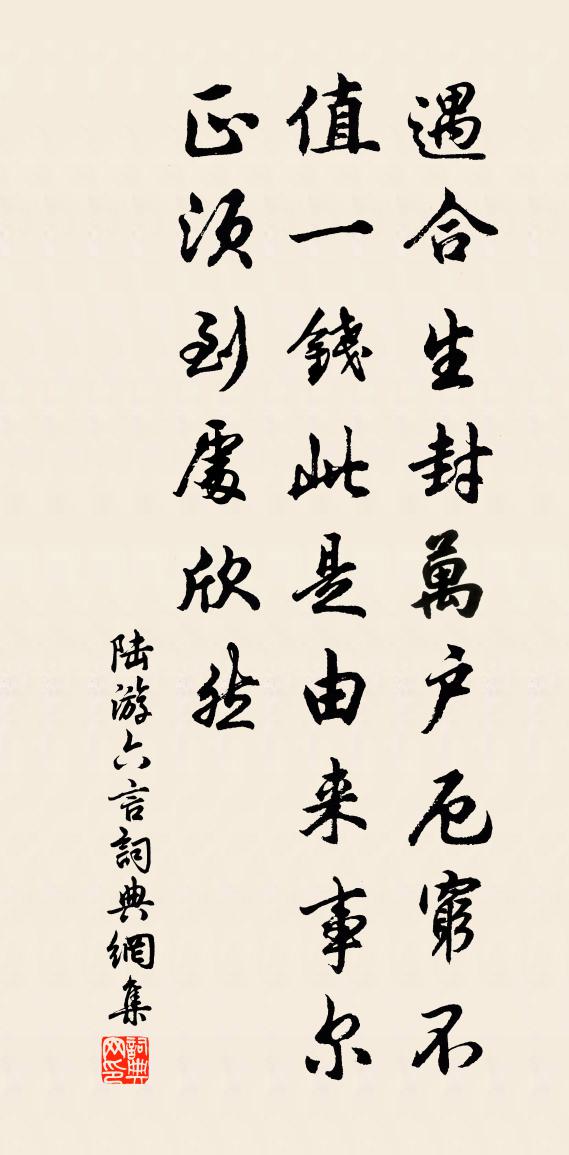 遇合生封萬户厄窮不
值一錢此是由来事尔
正須到處欣然
陆游六言詞典網集
詞典网印